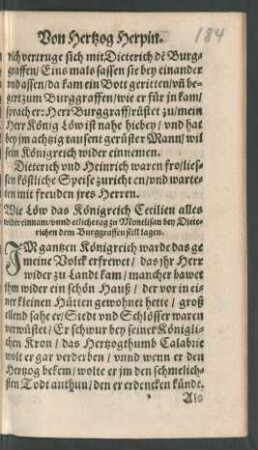 Von Hertzog Herpin.
184
rich vertruge sich mit Dieterich dē Burg-
graffen / Eins mals sassen sie bey einander
vnd assen / da kam ein Bott geritten / vñ be-
gert zum Burggraffen / wie er für jn kam /
sprach er: Herr Burggraff / rüstet zu / mein
Herr König Löw ist nahe hiebey / vnd hat
bey jm achtzig tausent gerüster Mann / wil
sein Königreich wider einnemen.
Dieterich vnd Heinrich waren fro / lies-
sen köstliche Speise zurichten / vnd warte-
ten mit freuden jres Herren.
Wie Löw das Königreich Cecilien alles
wider einnam / vnd etliche tag zu Montelisan bey Diete-
richen dem Burggraffen still lagen.
IM gantzen Königreich warde das ge
meine Volck erfrewet / das jhr Herr
wider zu Landt kam / mancher bawet
jhm wider ein schön Hauß / der vor in ei-
ner kleinen Hütten gewohnet hette / groß
ellend sahe er / Stedt vnd Schlösser waren
verwüstet / Er schwur bey seiner Königli-
chen Kron / das Hertzogthumb Calabrie
wolt er gar verderben / vnnd wenn er den
Hertzog bekem / wolte er jm den schmelich-
sten Todt anthun / den er erdencken künde.
Als